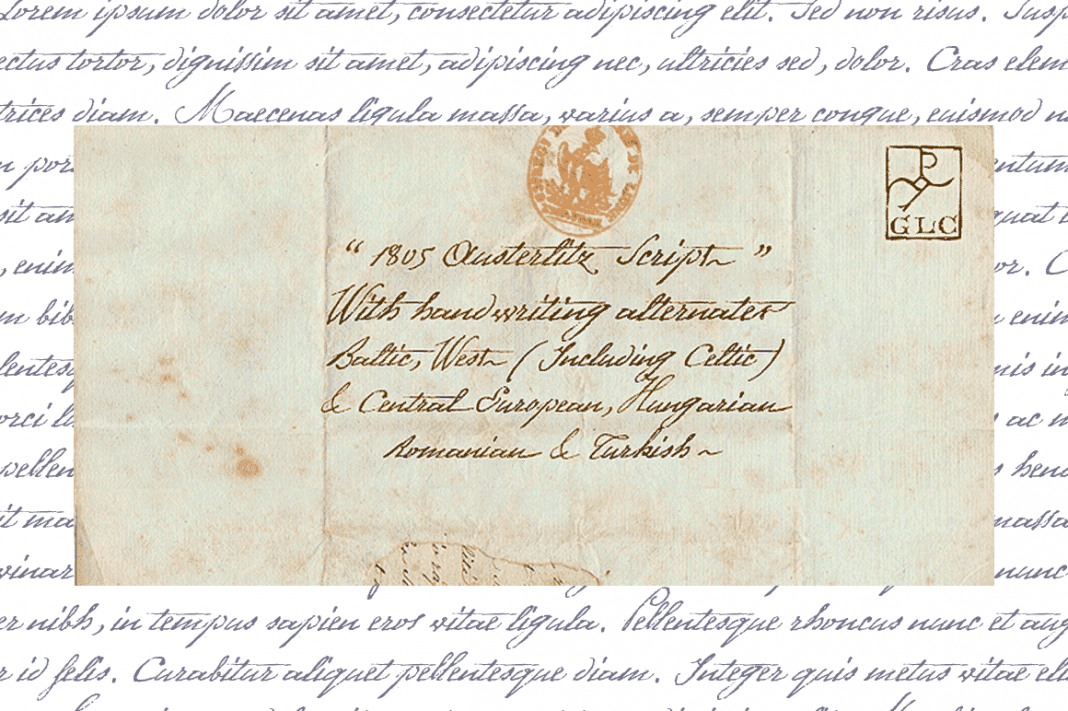 Lorem ipsum dolor sit amet, consectetur adipiscing elit. Sed non risus. Susp
ectus tortor, dignissim sit amet, adipiscing nec, ultricies sed, dolor. Cras elem
trices diam. Maecenas ligula massa, varius a, semper congue, euismod
GLC
“ 1805 Austerlitz Script ”
With handwriting alternates
Baltic, West (Including Celtic)
& Central European, Hungarian
Romanian & Turkish
n por
entum
sit am
quat
, enim
or. C
m bib
enim
lentesq
nis in
orci lu
ac
pellen
s hend
it ma
massa
vinar
nunc
er nibh, in tempus sapien eros vitae ligula. Pellentesque rhoncus nunc et aug
r id felis. Curabitur aliquet pellentesque diam. Integer quis metus vitae eli